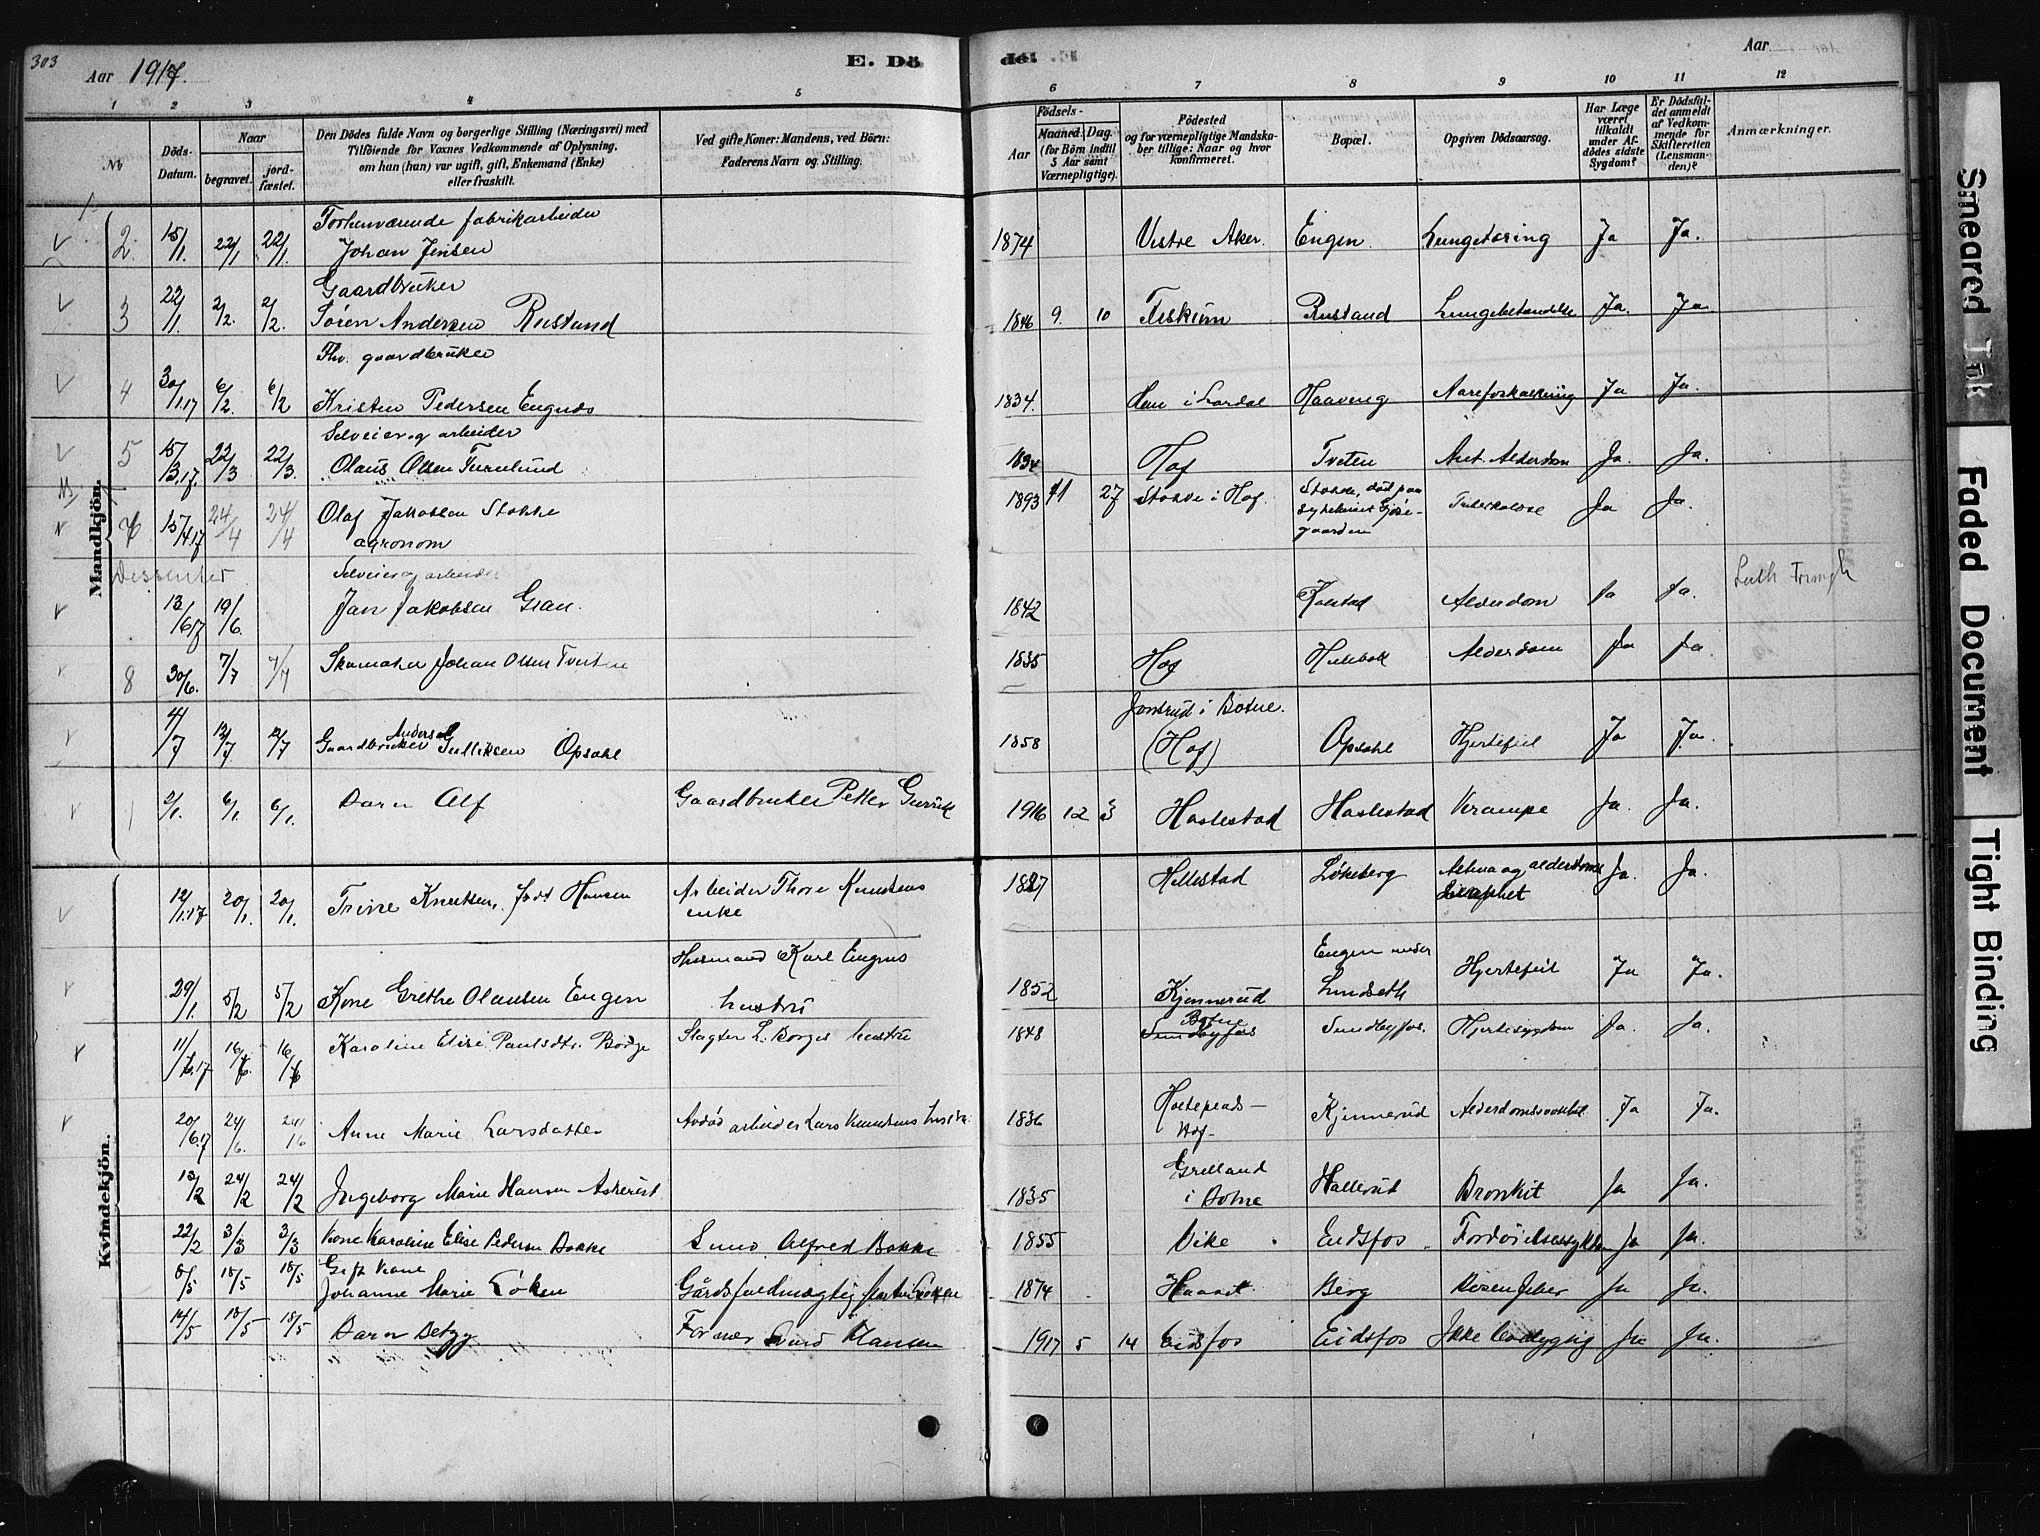 303
Aar 1917.
E. Dö
de.
Aar
1 2 3 4 5 6 7 8 9 10 11 12
No
Döds-Datum.
Naar
begravet.
jord-fæstet.
Den Dödes fulde Navn og borgerlige Stilling (Næringsvei) med
Tilföiende for Voxnes Vedkommende af Oplysning,
om han (hun) var ugift, gift, Enkemand (Enke)
eller fraskilt.
Ved gifte Koner: Mandens, ved Börn:
Faderens Navn og Stilling.
Födsels-
Aar
Maaned. Dag.
(for Börn indtil
5 Aar samt
Værnepligtige).
Födested
og for værnepligtige Mandska-
ber tillige: Naar og hvor
konfirmeret.
Bopæl.
Opgiven Dödsaarsag.
Har Læge
været
tilkaldt
under Af-
dödes sidste
Sygdom?
Er Dödsfal-
det anmeldt
af Vedkom-
mende for
Skifteretten
(Lensman-
den)?
Anmærkninger.
Mandkjön.
Forhenværende fabrikarbeider
2. 15/1. 22/1 22/1. Johan Jensen 1874 Vestre Aker. Engen. Lungetæring Ja Ja.
Gaardbruker
3 22/1. 2/2. 2/2. Søren Andersen Rustand 1846 9. 10 Fiskum Rustand Lungebetændelse Ja. Ja.
Fhv. gaardbruker
4 30/1.17 6/2. 6/2 Kristen Pedersen Engnes 1834. i Lardal Haaveng Aareforkalkning Ja Ja.
Selveier og arbeider
5 15/3.17. 22/3 22/3. Olaus Olsen 1834 Hof Tveten Ant. Alderdom Ja. Ja.
15/4.17 24/4 24/4 Olaf Jakobsen Stokke 1893 11 27 Stokke i Hof. Stokke, død paa Tuberkulose Ja Ja.
agronom
gaarden
Dissenter
Selveier og arbeider
13/6.17 19/6. Jan Jakobsen Gran. 1842 Alderdom Ja Ja. Luth Frimgh
8 30/6. 7/7 7/7 Skomaker Johan Olsen Tveiten 1835 Hof Alderdom Ja Ja.
Jonsrud i Botne.
4/7 13/7 12/7 Gaardbruker Anders Gulliksen Opsahl 1858 (Hof) Opsahl Hjertefeil Ja Ja.
1 2/1. 6/1. 6/1. Barn Alf Gaardbruker Petter 1916 12 3 Haslestad Haslestad Krampe Ja. Ja.
Kvindekjön.
12/1.17 20/1. 20/1. Trine Knutsen, født Hansen Arbeider Thore Knutsens 1827 Hillestad Løkeberg Astma og alderdoms Ja. Ja.
enke
svaghet
Husmand Karl Engens Engen under
29/1. 5/2 5/2 Kone Grethe Olausen Engen hustru 1852 Kjennerud Lundseth Hjertefeil Ja Ja.
Botne
11/6.17 16/6. 16/6 Karoline Elise Paulsdtr. Borge Slagter L. Borges hustru 1848 Sundbyfos Sundbyfos. Hjertesygdom Ja. Ja.
20/6.17 24/6. 24/6 Anne Marie Larsdatter Avdød arbeider Lars Knudsens hustru 1836 Hof Kjennerud Alderdomssvakhet. Ja Ja.
Grelland
13/2 24/2 24/2 Ingeborg Marie Hansen Askerud 1835 i Botne Hallerud Bronkit Ja Ja.
22/2 3/3 3/3 Kone Karoline Elise Pedersen Bakke Smed Alfred Bakke 1855 Vike Eidsfos Fordøielsessykdom Ja Ja.
Gift Kone
8/5 15/5 15/5 Johanne Marie Løken Gårdsfuldmægtig Martin Løken 1874 Berg Rosenfeber Ja Ja.
14/5 18/5 18/5 Barn Betzy Former Hansen 1917 5 14 Eidsfos Eidsfos Ikke levedygtig Ja Ja.
Smeared Ink
Faded Document
Tight Binding